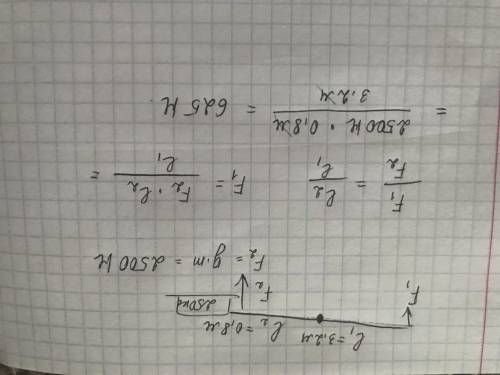 l₁=3,2м l₂=0,8м
F₁ F₂ 250кг
F₂ = g·m = 2500 Н
F₁/F₂ = l₂/l₁ F₁ = F₂·l₂/l₁ =
= 2500Н · 0,8м/3,2м = 625 Н